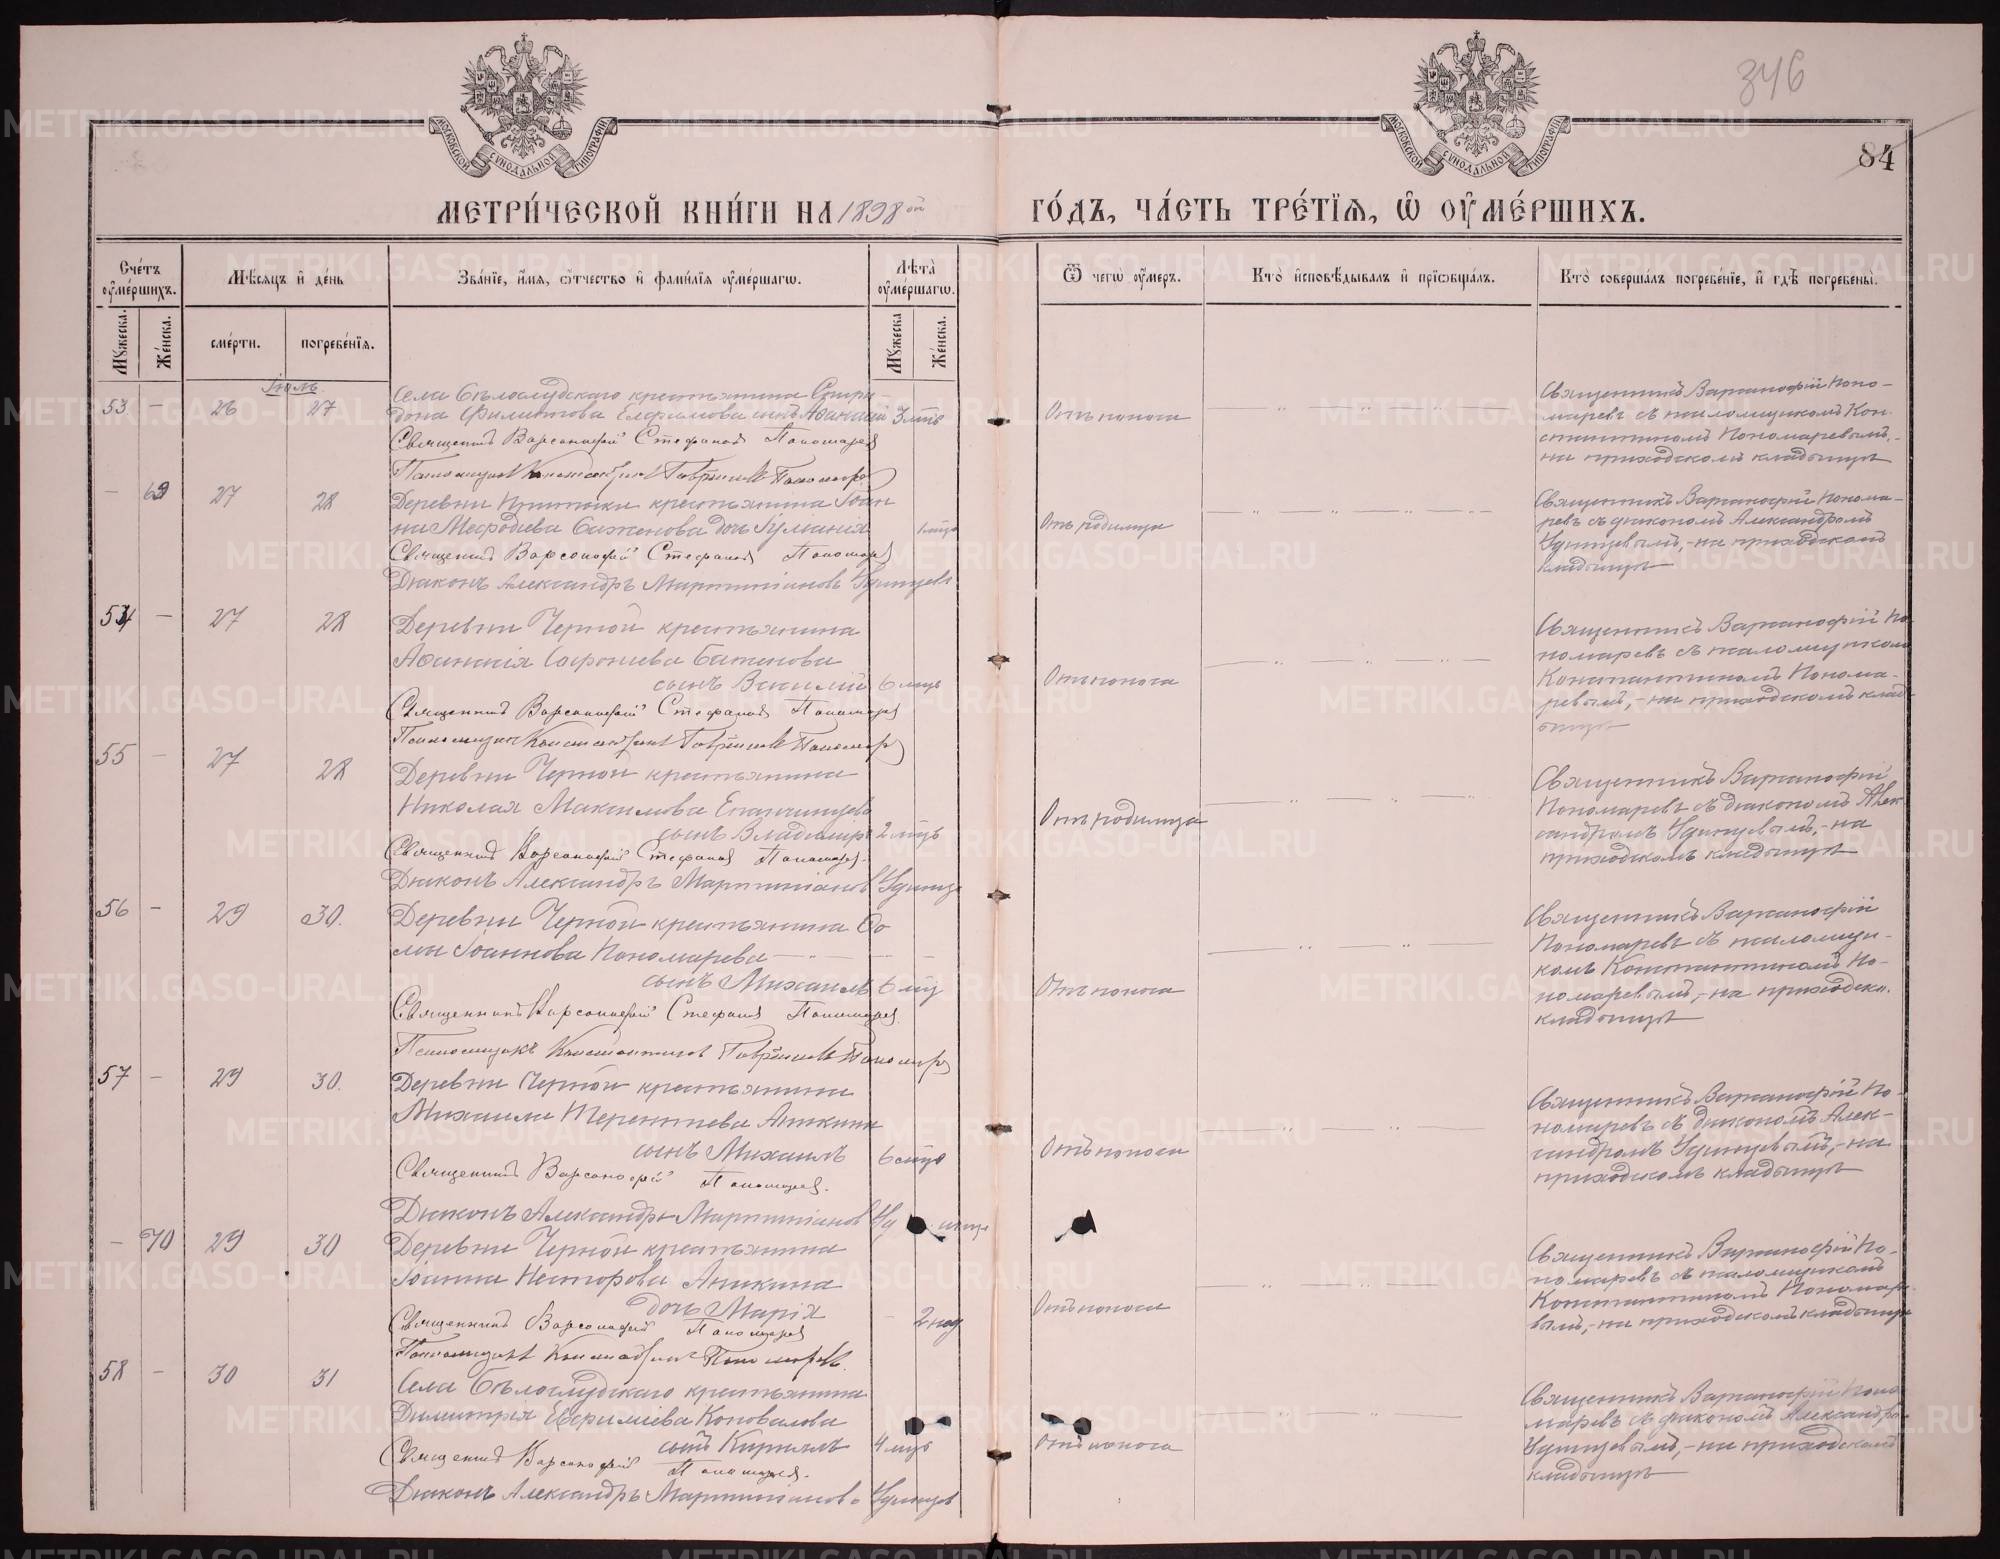 346
84
МОСКОВСКОЙ СѴНОДАЛЬНОЙ ТИПОГРАФІИ
МОСКОВСКОЙ СѴНОДАЛЬНОЙ ТИПОГРАФІИ
МЕТРИ́ЧЕСКОЙ КНИ́ГИ НА 1898 ой ГО́ДЪ, ЧА́СТЬ ТРЕ́ТІѦ, Ѡ ОУ҆МЕ́РШИХЪ.
Сче́тъ оу҆ме́ршихъ.
Мѣ́сѧцъ и҆ де́нь
Зва́нїе, и҆́мѧ, ѻ҆́тчество и҆ фами́лїѧ оу҆ме́ршагѡ.
Лѣ̀та оу҆ме́ршагѡ.
Ѿ чегѡ̀ оу҆́меръ.
Кто̀ и҆сповѣ́дывалъ и҆ прїѡбща́лъ.
Кто̀ соверша́лъ погребе́нїе, и҆ гдѣ̀ погребены̀.
Мꙋ́жеска. Же́нска. сме́рти. погребе́нїѧ. Мꙋ́жеска Же́нска.
Іюль.
53 — 26 27
Села Бѣлослудскаго крестьянина Спири
дона Филиппова Елфимова сынъ Афанасій 3 лѣтъ
Священникъ Варсонофій Стефановъ Пономаревъ
Псаломщикъ Константинъ Гавріиловъ Пономарев
Отъ поноса
Священникъ Варсанофій Поно-
маревъ съ псаломщикомъ Кон-
стантиномъ Пономаревымъ,-
на приходскомъ кладбищѣ
— 69 27 28
Деревни крестьянина Іоан
на Мефодіева Баженова дочь Іуліанія 1 мѣс
Священникъ Варсонофій Стефановъ Пономарев
Діаконъ Александръ Мартиніановъ Удинцевъ
Отъ родимца
Священникъ Варсанофій Понома-
ревъ съ діакономъ Александромъ
Удинцевымъ,- на приходскомъ
кладбищѣ
54 — 27 28
Деревни Черной крестьянина
Афанасія Софоніева Баженова
сынъ Василій 6 мѣс
Священникъ Варсонофій Стефановъ Пономарев
Псаломщикъ Константинъ Гавріиловъ Пономарев
Отъ поноса
Священникъ Варсанофій По-
номаревъ съ псаломщикомъ
Константиномъ Понома-
ревымъ,- на приходскомъ клад-
бищѣ
55 — 27 28
Деревни Черной крестьянина
Николая Максимова Епанчинцева
сынъ Владимиръ 2 мѣс
Священникъ Варсонофій Стефановъ Пономарев.
Діаконъ Александръ Мартиніановъ Удинце
Отъ родимца
Священникъ Варсанофій
Пономаревъ съ діакономъ Алек-
сандромъ Удинцевымъ,- на
приходскомъ кладбищѣ
56 — 29 30.
Деревни Черной крестьянина Фо
мы Іоаннова Пономарева
сынъ Михаилъ 6 мѣс
Священникъ Варсонофій Стефановъ Пономарев
Псаломщикъ Константинъ Гавріиловъ Пономарев
Отъ поноса
Священникъ Варсанофій
Пономаревъ съ псаломщи-
комъ Константиномъ По-
номаревымъ,- на приходско.
кладбищѣ
57 — 29 30.
Деревни Черной крестьянина
Михаила Терентіева Аникина
сынъ Михаилъ 6 мѣс
Священникъ Варсонофій Пономарев.
Діаконъ Александръ Мартиніановъ
Отъ поноса
Священникъ Варсанофій По-
номаревъ съ діакономъ Алек-
сандромъ Удинцевымъ,- на
приходскомъ кладбищѣ
— 70 29 30
Деревни Черной крестьянина
Іоанна Несторова Аникина
дочь Марія 2 нед
Священникъ Варсонофій Пономарев
Псаломщикъ Константинъ Пономаревъ.
Отъ поноса
Священникъ Варсанофій По-
номаревъ съ псаломщикомъ
Константиномъ Пономаре-
вымъ,- на приходскомъ кладбищѣ
58 — 30 31
Села Бѣлослудскаго крестьянина
Димитрія Евфиміева Коновалова
сынъ Кириллъ 4 мѣс
Священникъ Варсонофій Пономарев.
Діаконъ Александръ Мартиніановъ Удинцов
Отъ поноса
Священникъ Варсанофій Поно-
маревъ съ діакономъ Александро-
Удинцевымъ,- на приходскомъ
кладбищѣ
METRIKI.GASO-URAL.RU